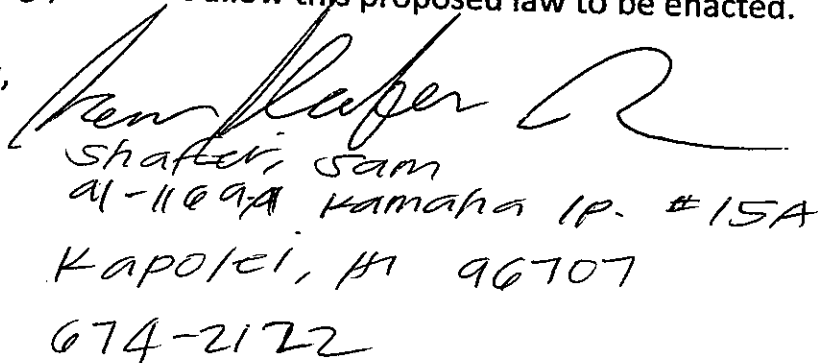 allow this proposed law to be enacted.
,
Sam Shafer
Shafer, Sam
91-1169A Kamaha lp. #15A
Kapolei, HI 96707
674-2122